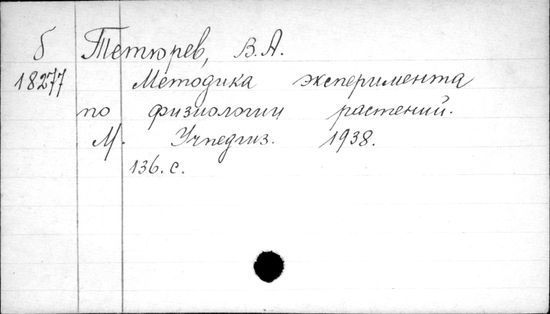 б Тетюрев, В.А.
18277 Методика эксперимента
по физиологии растений.
М. Учпедгиз. 1938.
136. с.